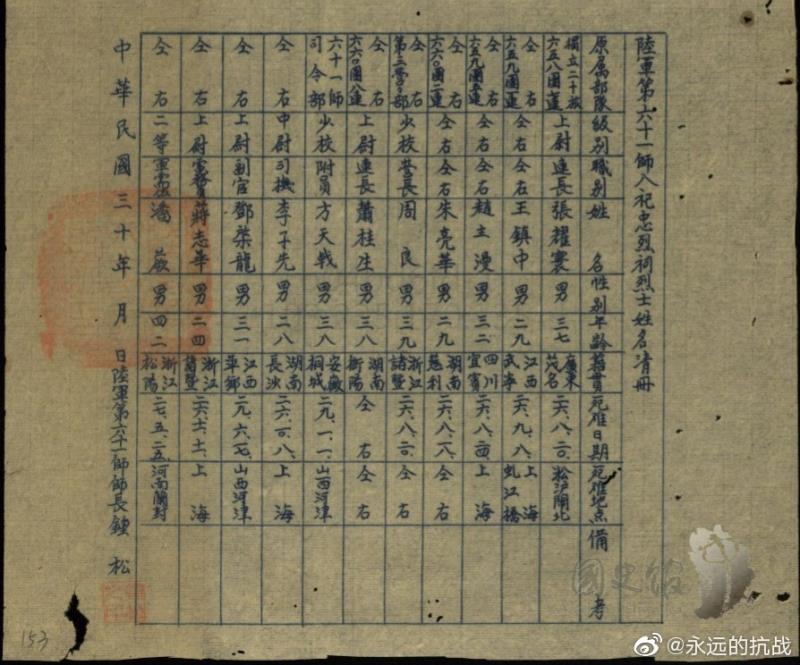 陸軍第六十一師入祀忠烈祠烈士姓名清册
原属部隊 級别 職别 姓名 性别 年齡 籍貫 死難日期 死難地点 備考
獨立二十旅六五八團連 上尉 連長 張耀寰 男 三七 廣東茂名 二六、八、二〇、 淞沪閘北
仝右六五九團連 仝右 仝右 王鎮中 男 二九 江西武寧 二六、九、八、 上海虬江橋
仝右六五九團連 仝右 仝右 趙立漫 男 三二 四川宜賓 二六、八、二四、 上海
仝右六六〇團二連 仝右 仝右 朱亮華 男 二九 湖南慈利 二六、八、二八、 仝右
仝右第三營部 少校 營長 周良 男 三九 浙江諸暨 二六、八、二〇、 仝右
仝右六六〇團八連 上尉 連長 蕭桂生 男 三八 湖南衡陽 仝右 仝右
六十一師司令部 少校 附員 方天戟 男 三八 安徽桐城 二九、一、一、 山西河津
仝右 中尉 司機 李子先 男 二八 湖南長沙 二六、一〇、八、 上海
仝右 上尉 副官 鄧榮龍 男 三一 江西萍鄉 二九、六、一七、 山西河津
仝右 上尉 軍醫 蔣志華 男 二四 浙江諸暨 二六、十、十、 上海
仝右 二等 軍需 潘 男 四二 浙江松陽 二七、五、二五、 河南蘭封
中華民國三十年 月 日陸軍第六十一師師長鍾松
153
國史館
@永远的抗战